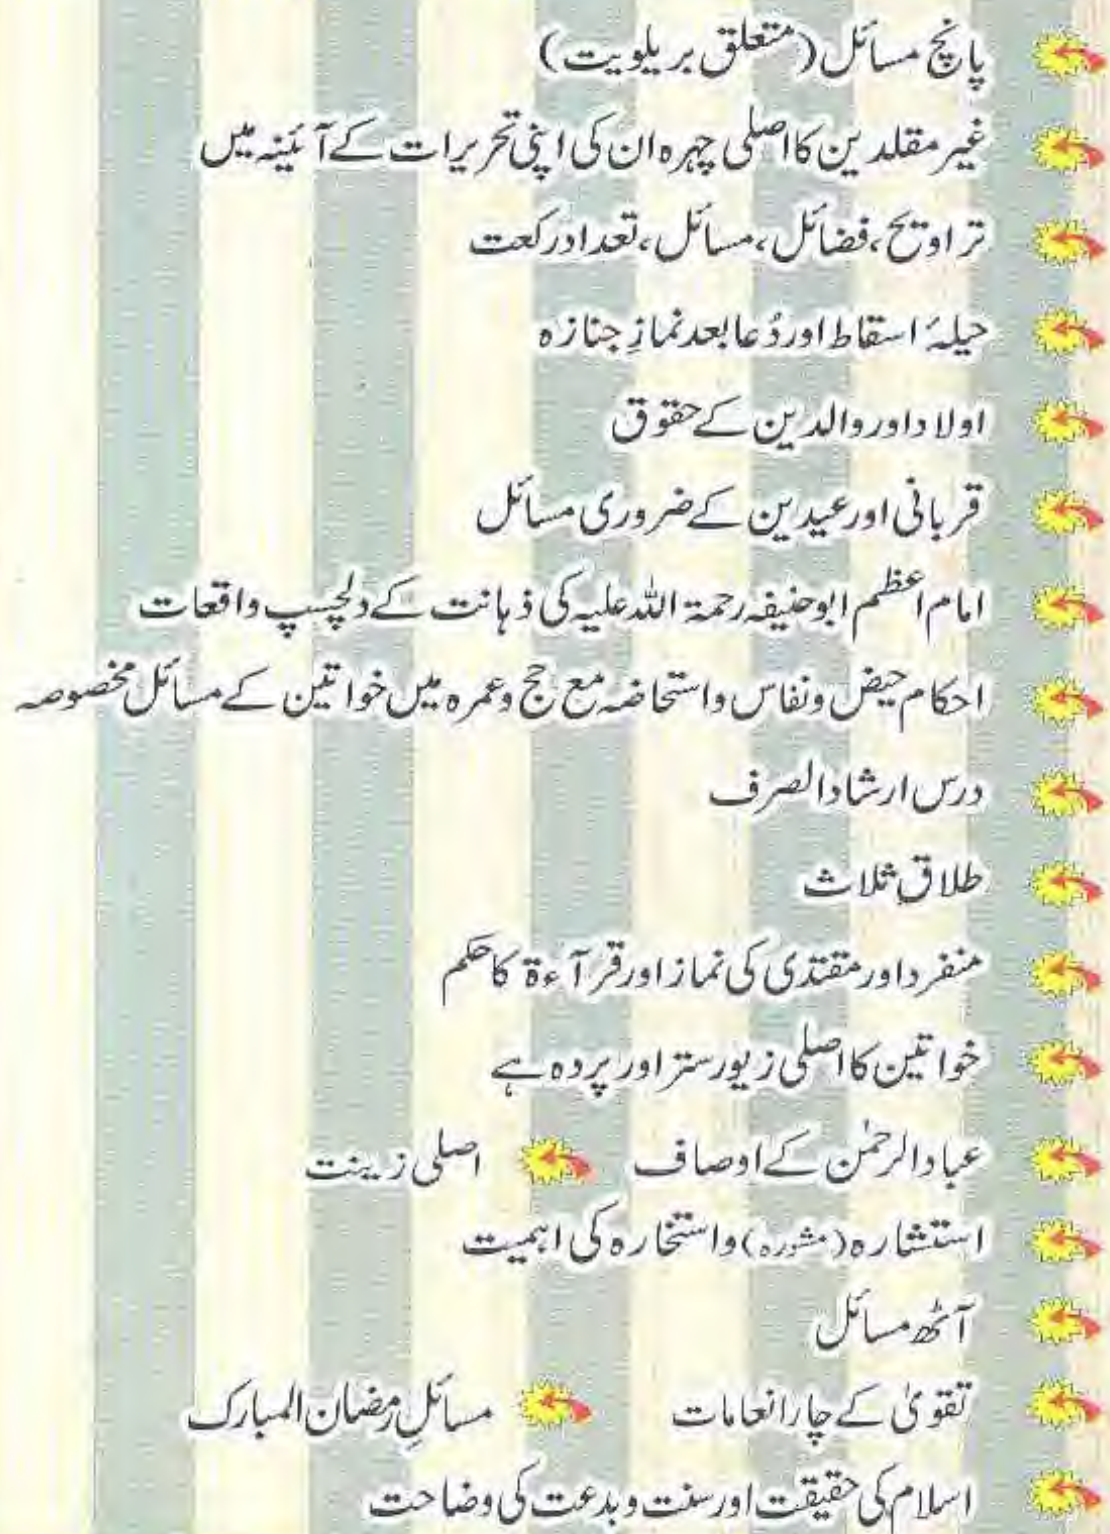 پانچ مسائل (متعلق بریلویت)
غیر مقلدین کا اصلی چہرہ ان کی اپنی تحریرات کے آئینہ میں
تراویح، فضائل، مسائل، تعداد رکعت
حیلۂ اسقاط اور دُعا بعد نمازِ جنازہ
اولاد اور والدین کے حقوق
قربانی اور عیدین کے ضروری مسائل
امام اعظم ابوحنیفہ رحمۃ اللہ علیہ کی ذہانت کے دلچسپ واقعات
احکام حیض و نفاس و استحاضہ مع حج و عمرہ میں خواتین کے مسائل مخصوصہ
درس ارشاد الصرف
طلاقِ ثلاث
منفرد اور مقتدی کی نماز اور قرآءۃ کا حکم
خواتین کا اصلی زیور ستر اور پردہ ہے
عباد الرحمٰن کے اوصاف اصلی زینت
استشارہ (مشورہ) و استخارہ کی اہمیت
آٹھ مسائل
تقویٰ کے چار انعامات مسائلِ رمضان المبارک
اسلام کی حقیقت اور سنت و بدعت کی وضاحت